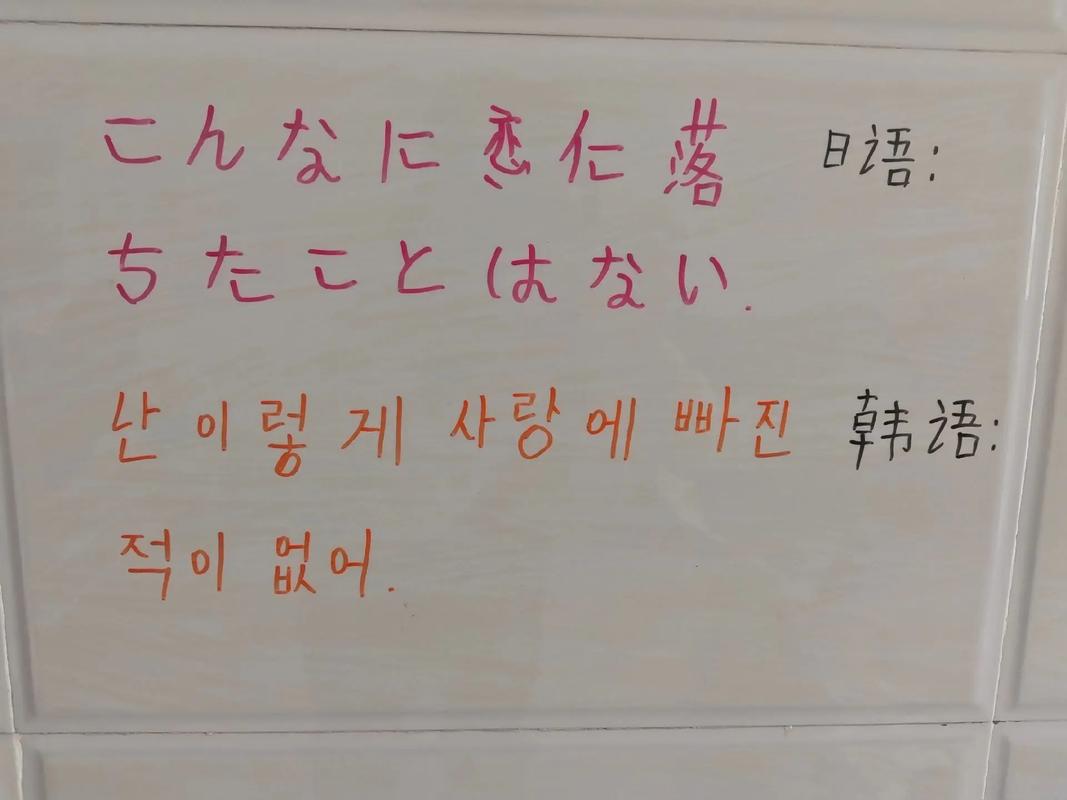 こんなに恋に落 日语:
ちたことはない.
난 이렇게 사랑에 빠진 韩语:
적이 없어.